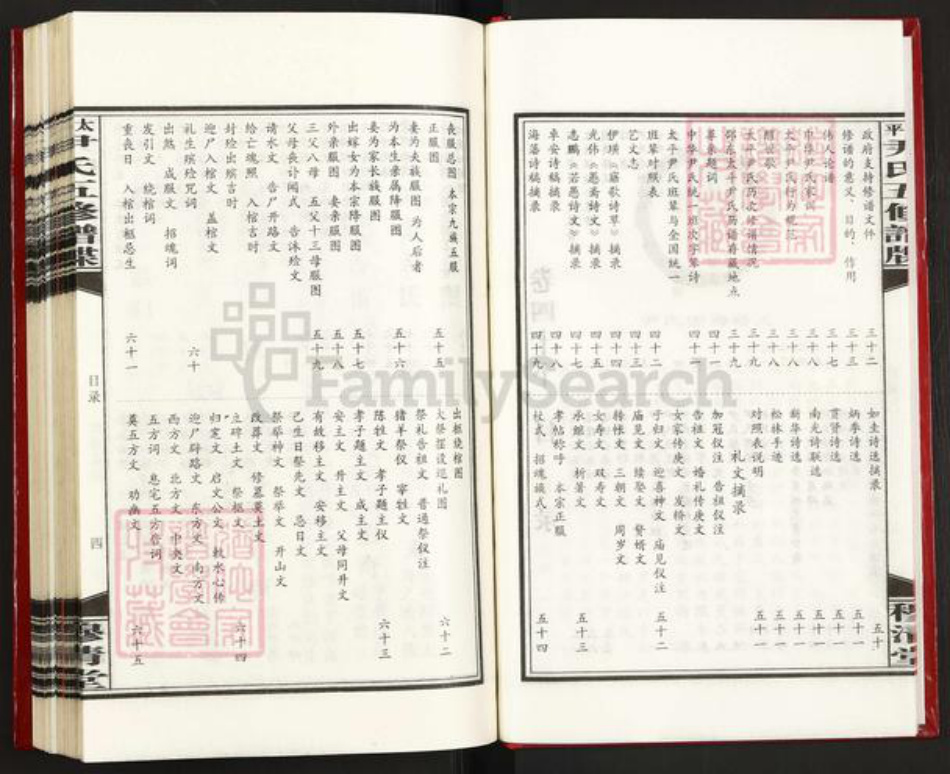 政府支持修谱文件 三十二
修谱的意义、目的、作用 三十三
伟人论谱 三十七
中华尹氏家训 三十八
太平尹氏行为规范 三十八
三十八
太平尹氏历次修谱情况 三十九
邵东太平尹氏历谱存藏地点 三十九
恭录题词 四十一
中华尹氏统一班次字辈诗 四十一
太平尹氏班辈与全国统一
班辈对照表 四十二
艺文志 四十三
伊璜《寤歌诗草》摘录 四十四
光伟《愚斋诗文》摘录 四十五
志鹏《若愚诗文》摘录 四十七
卓安诗稿摘录 四十八
海藩诗稿摘录 四十九
如圭诗选摘录 五十
炳季诗选 五十一
育贤诗选 五十一
南光诗联选 五十一
新华诗选 五十一
松林手迹
对照表说明 五十一
礼文摘录
加冠仪注 告祖仪注
告祖文 婚礼传庚文
女家传庚文 发轿文
于归文 迎喜神文 庙见仪注 五十二
庙见文 续娶文 赘婿文
转帐文 三朝文 周岁文
女寿文 双寿文
承继文 析箸文 五十三
孝帖称呼 本宗正服
杖式 招魂旗式 五十四
丧服总图 本宗九族五服
正服图 五十五
妻为夫族服图 为人后者
为本生亲属降服图 五十六
妾为家长族服图
出嫁女为本宗降服图 五十七
外亲服图 妻亲服图 五十八
三父八母 五父十三母服图 五十九
父母丧讣闻式 告沐殓文
请水文 告尸开路文
给亡魂照 入棺吉时
封殓出殡吉时
迎尸入棺文 盖棺文
礼生缤殓咒词 六十
出煞 成服文 招魂词
发引文 绕棺词
重丧日 入棺出柩忌生 六十一
出柩绕棺图
大祭摆设巡礼图 六十二
祭礼告祖文 普通祭仪注
猪羊祭仪 宰牲文
陈牲文 孝子题主仪 六十三
孝子题主文 成主文
安主文 升主文 父母同升文
有故移主文 安移主文
己生日祭先文 忌日文
祭举神文 祭举文 开山文
改葬文 修墓奠土文
立碑土文 祭柩文 六十四
归窆文 启文公文 敕水心传
迎尸辟路文 东方文 南方文
西方文 北方文 中央文
五方词 息宅五方咎词
奠五方文 功曹文 六十五
目录
四
尹氏五修谱牒